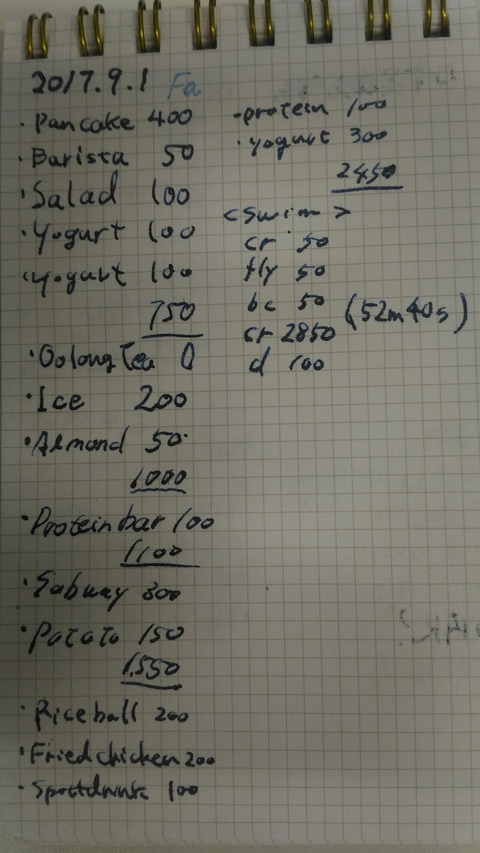 2017.9.1 Fa
・Pancake 400
・Barista 50
・Salad 100
・Yogurt 100
・yogurt 100
750
・Oolong Tea 0
・Ice 200
・Almond 50
1000
・Protein bar 100
1100
・Subway 300
・Potato 150
1,550
・Riceball 200
・Friedchicken 200
・Sportdrink 100
・protein 100
・yogurt 300
2450
<swim>
cr 50
fly 50
bc 50
cr 2850 (52m40s)
d 100